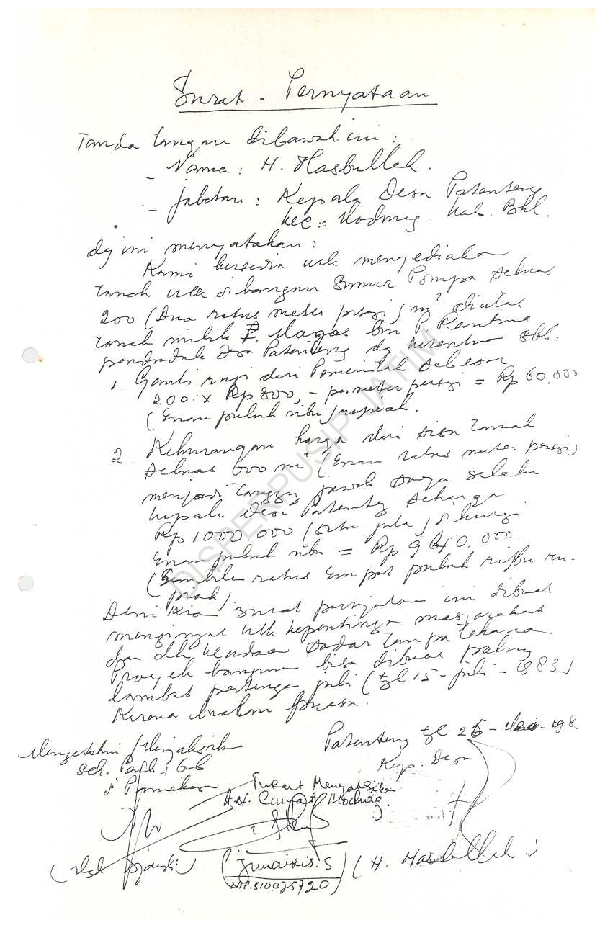 Surat - Pernyataan
Tanda tangan dibawah ini :
- Nama : H. Hasbullah.
- Jabatan : Kepala Desa Patenteng
Kec. Modung Kab. Bkl.
dg ini menyatakan :
Kami bersedia utk menyediakan
tanah utk di bangun Sumur Pompa seluas
200 (Dua ratus meter persegi) m² diatas
tanah milik P.
penduduk Ds Patenteng dg
1. Ganti rugi dari Pemerintah sebesar
200 x Rp 300,- permeter persegi = Rp 60,000
(Enam puluh ribu) rupiah.
2. Kekurangan harga dari sisa tanah
seluas 600 m² (Enam ratus meter persegi)
menjadi tanggung jawab saya selaku
Kepala Desa Patenteng seharga
Rp 1000.000 (satu juta)
Enam puluh ribu = Rp 940,000
(Sembilan ratus Empat puluh ribu ru-
piah)
Demikian surat pernyataan ini dibuat
mengingat utk kepentingan masyarakat
dan dlm keadaan sadar tanpa tekanan
Proyek bangunan bisa dibuat paling
lambat pertengahan juli (tgl 15 - juli - 1983)
Karena
Patenteng tgl 25 -
Mengetahui / Menyaksikan
Kepa. Desa
Turut Menyaksikan
Ass. Camat Modung
(Junaidi S) (H. Hasbullah)
NIP. 510025720)
DISPERPUSIP JATIM